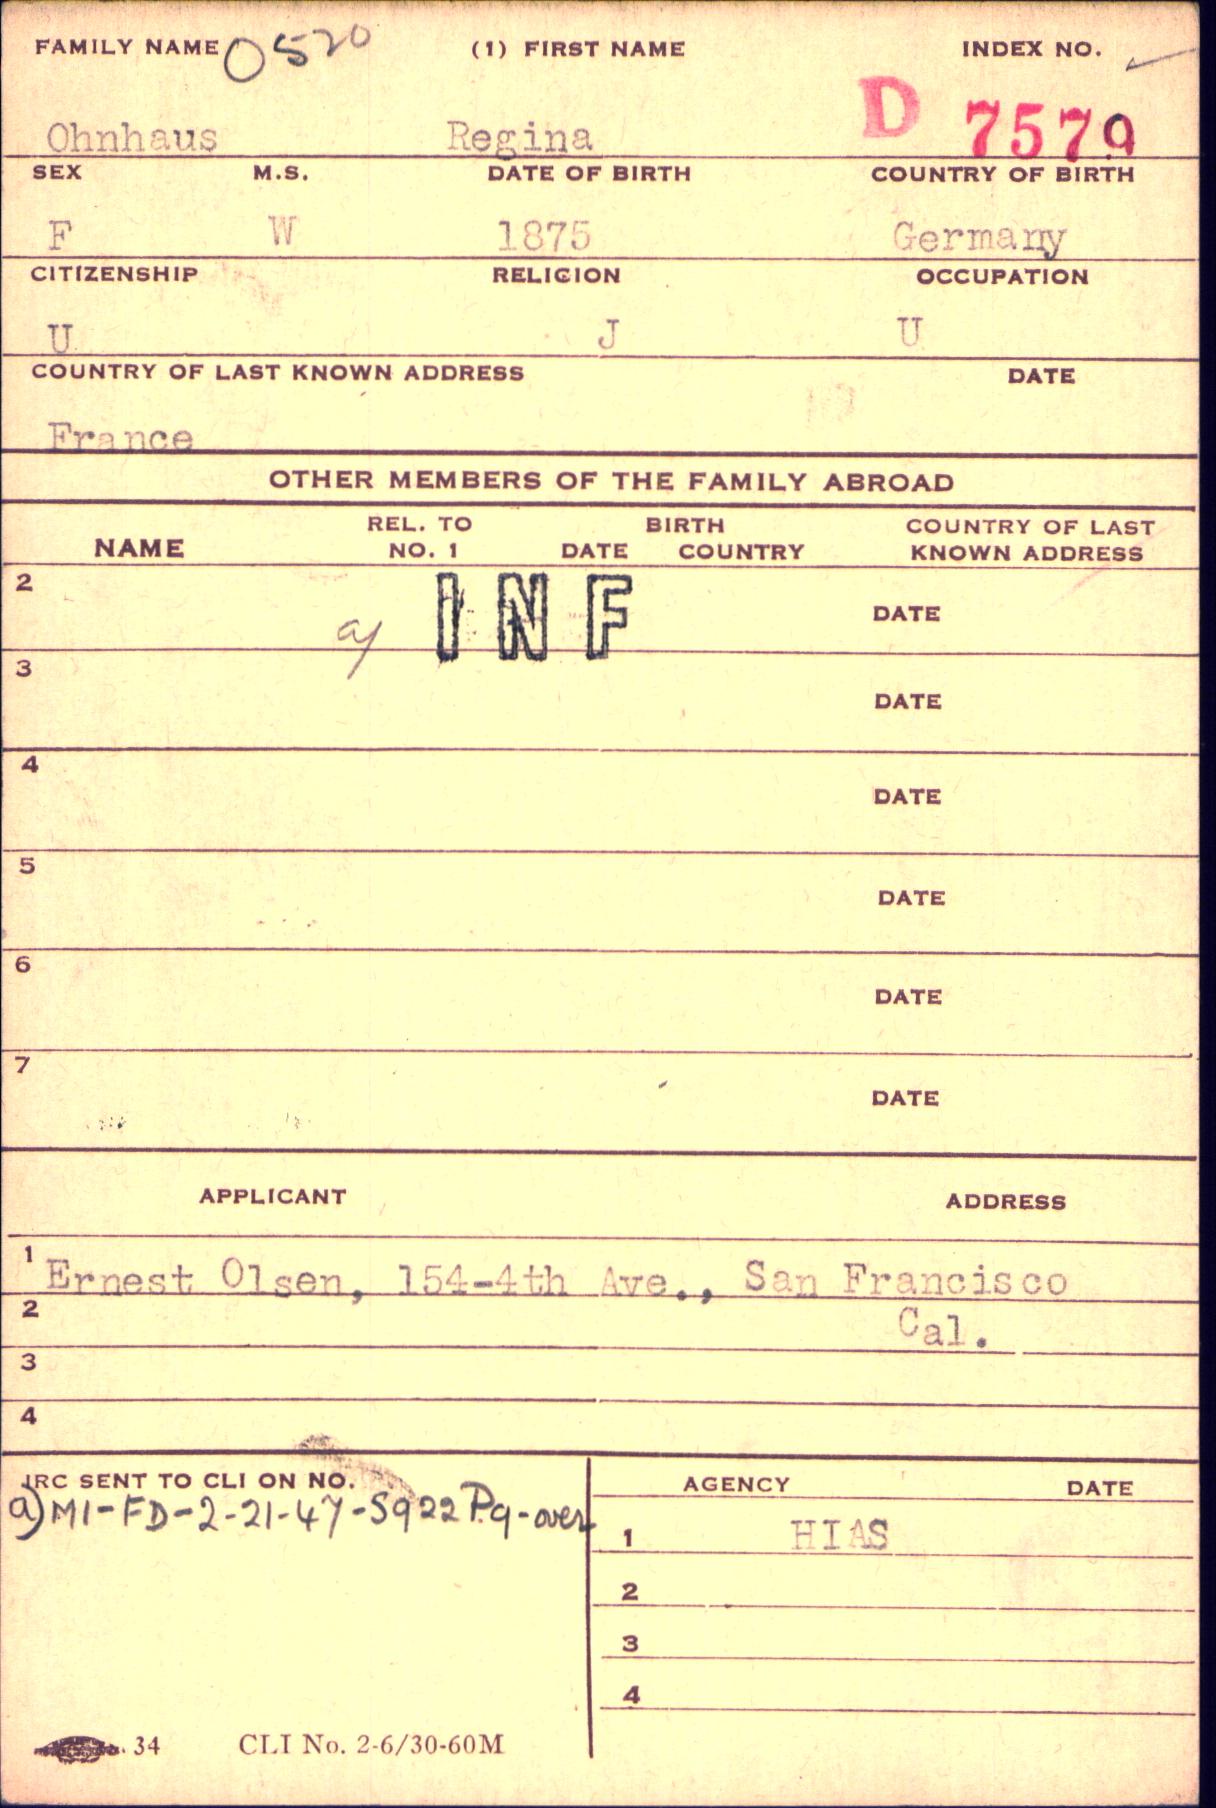 FAMILY NAME O520 (1) FIRST NAME INDEX NO.
D 7579
Ohnhaus Regina
SEX M.S. DATE OF BIRTH COUNTRY OF BIRTH
F W 1875 Germany
CITIZENSHIP RELIGION OCCUPATION
U J U
COUNTRY OF LAST KNOWN ADDRESS DATE
France
OTHER MEMBERS OF THE FAMILY ABROAD
NAME REL. TO NO. 1 BIRTH DATE COUNTRY COUNTRY OF LAST KNOWN ADDRESS
2 a) INF DATE
3 DATE
4 DATE
5 DATE
6 DATE
7 DATE
APPLICANT ADDRESS
1 Ernest Olsen, 154-4th Ave., San Francisco
2 Cal.
3
4
IRC SENT TO CLI ON NO. AGENCY DATE
a) MI-FD-2-21-47-S922 P.9-over
1 HIAS
2
3
4
34 CLI No. 2-6/30-60M